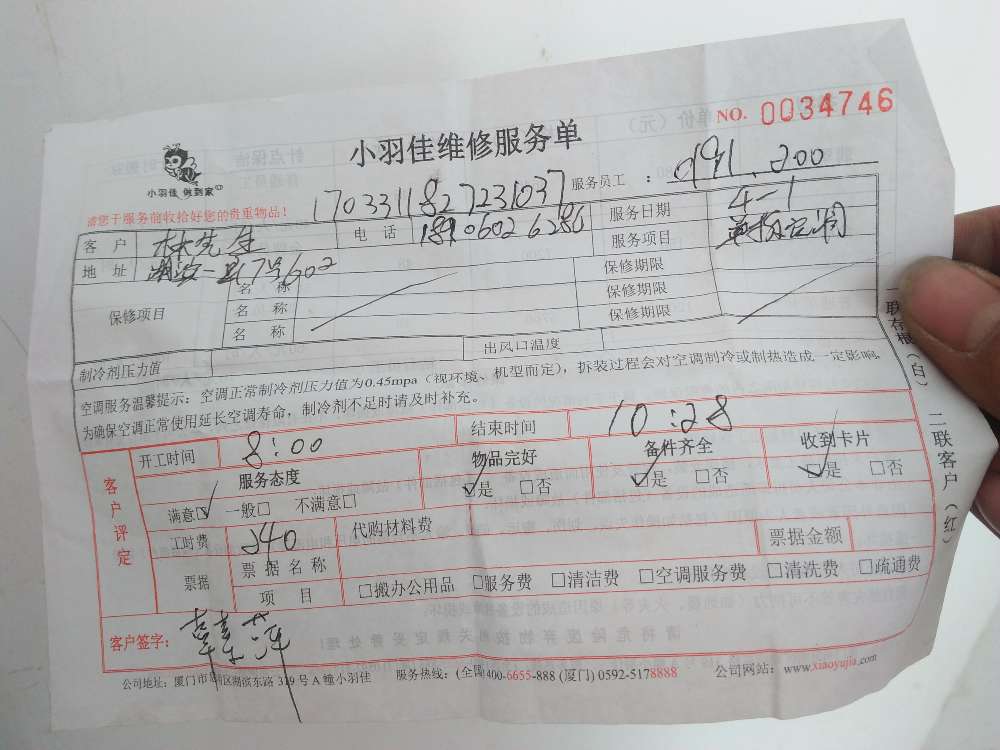 NO. 0034746
小羽佳维修服务单
小羽佳 做到家
请您于服务前收拾好您的贵重物品!
1703311827231037
服务员工 : 200
客 户 林先生 电 话 服务日期 4-1
地 址 7号602 服务项目
保修项目 名 称 保修期限
名 称 保修期限
名 称 保修期限
制冷剂压力值 出风口温度
空调服务温馨提示:空调正常制冷剂压力值为0.45mpa(视环境、机型而定),拆装过程会对空调制冷或制热造成一定影响,
为确保空调正常使用延长空调寿命,制冷剂不足时请及时补充。
客户评定 开工时间 8:00 结束时间 10:28
服务态度 物品完好 备件齐全 收到卡片
满意☑ 一般□ 不满意□ ☑是 □否 ☑是 □否 ☑是 □否
工时费 240 代购材料费 票据金额
票据 票据名称
项 目 □搬办公用品 □服务费 □清洁费 □空调服务费 □清洗费 □疏通费
客户签字:
公司地址:厦门市 区湖滨东路 319 号 A 幢小羽佳 服务热线:(全国)400-6655-888 (厦门) 0592-5178888 公司网站:www.xiaoyujia.com
一联存根(白) 二联客户(红)